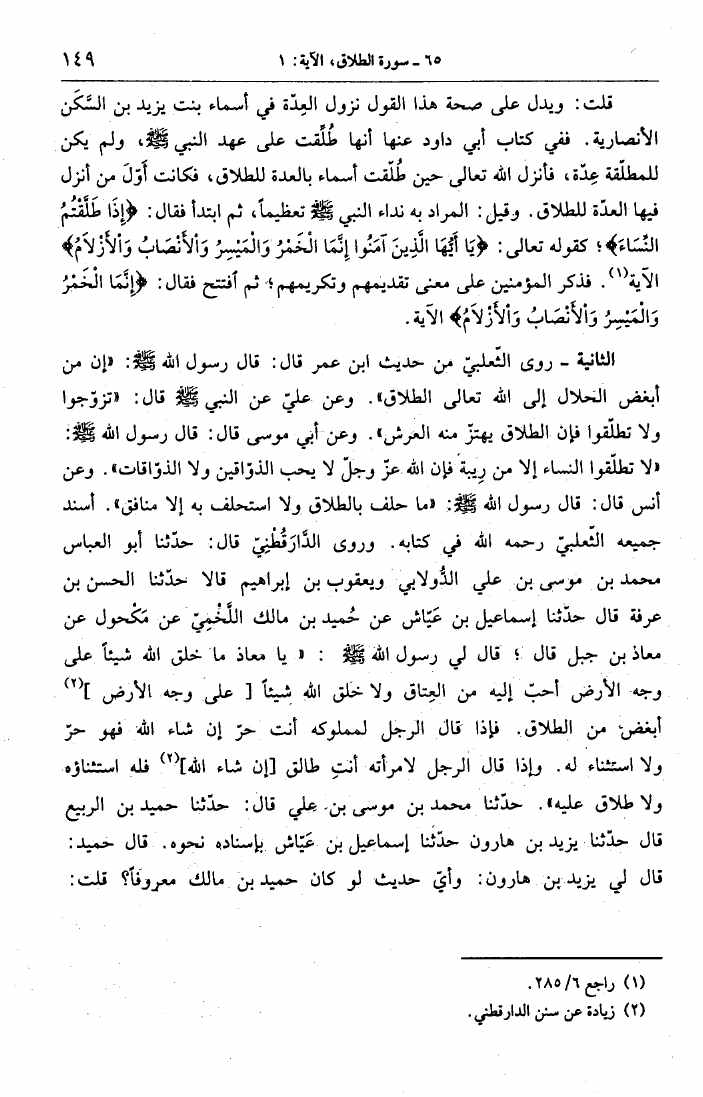 ٦٥ - سورة الطلاق، الآية: ١
١٤٩
قلت: ويدل على صحة هذا القول نزول العِدّة في أسماء بنت يزيد بن السَّكَن
الأنصارية. ففي كتاب أبي داود عنها أنها طُلِّقت على عهد النبي ﷺ، ولم يكن
للمطلّقة عِدّة، فأنزل الله تعالى حين طُلّقت أسماء بالعدة للطلاق، فكانت أوّلَ من أنزل
فيها العدّة للطلاق. وقيل: المراد به نداء النبي ﷺ تعظيماً، ثم ابتدأ فقال: ﴿إِذَا طَلَّقْتُمُ
النِّسَاءَ﴾؛ كقوله تعالى: ﴿يَا أَيُّهَا الَّذِينَ آمَنُوا إِنَّمَا الْخَمْرُ وَالْمَيْسِرُ وَالْأَنْصَابُ وَالْأَزْلَامُ﴾
الآية(١). فذكر المؤمنين على معنى تقديمهم وتكريمهم؛ ثم افتتح فقال: ﴿إِنَّمَا الْخَمْرُ
وَالْمَيْسِرُ وَالْأَنْصَابُ وَالْأَزْلَامُ﴾ الآية.
الثانية - روى الثّعلبيّ من حديث ابن عمر قال: قال رسول الله ﷺ: «إن من
أبغض الحلال إلى الله تعالى الطلاق». وعن عليّ عن النبي ﷺ قال: «تزوّجوا
ولا تطلّقوا فإن الطلاق يهتزّ منه العرش». وعن أبي موسى قال: قال رسول الله ﷺ:
«لا تطلّقوا النساء إلا من رِيبة فإن الله عزّ وجلّ لا يحب الذوّاقين ولا الذوّاقات». وعن
أنس قال: قال رسول الله ﷺ: «ما حلف بالطلاق ولا استحلف به إلا منافق». أسند
جميعه الثّعلبيّ رحمه الله في كتابه. وروى الدَّارَقُطْنِيّ قال: حدّثنا أبو العباس
محمد بن موسى بن علي الدُّولابي ويعقوب بن إبراهيم قالا حدّثنا الحسن بن
عرفة قال حدّثنا إسماعيل بن عَيّاش عن حُميد بن مالك اللَّخْمِيّ عن مَكْحول عن
معاذ بن جبل قال ؛ قال لي رسول الله ﷺ : « يا معاذ ما خلق الله شيئاً على
وجه الأرض أحبّ إليه من العِتاق ولا خلق الله شيئاً [ على وجه الأرض ](٢)
أبغض من الطلاق. فإذا قال الرجل لمملوكه أنت حرّ إن شاء الله فهو حرّ
ولا استثناء له. وإذا قال الرجل لامرأته أنتِ طالق [إن شاء الله](٢) فله استثناؤه
ولا طلاق عليه». حدّثنا محمد بن موسى بن علي قال: حدّثنا حميد بن الربيع
قال حدّثنا يزيد بن هارون حدّثنا إسماعيل بن عَيّاش بإسناده نحوه. قال حميد:
قال لي يزيد بن هارون: وأيّ حديث لو كان حميد بن مالك معروفاً؟ قلت:
(١) راجع ٢٨٥/٦.
(٢) زيادة عن سنن الدارقطني.